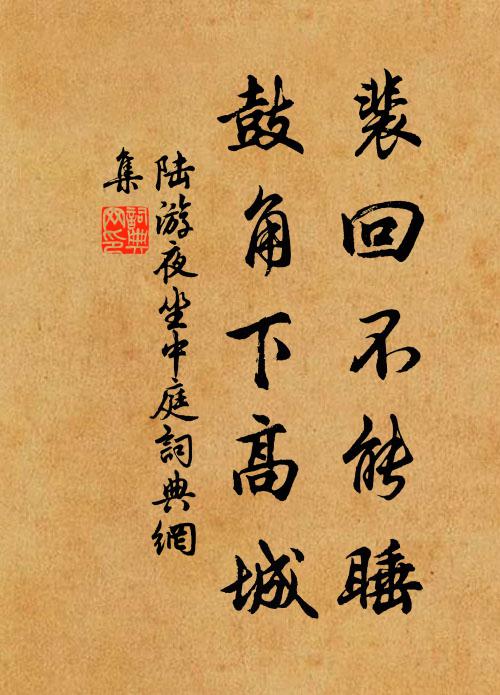 裴回不能睡
鼓角下高城
陆游夜坐中庭詞典網
集
詞典
网印